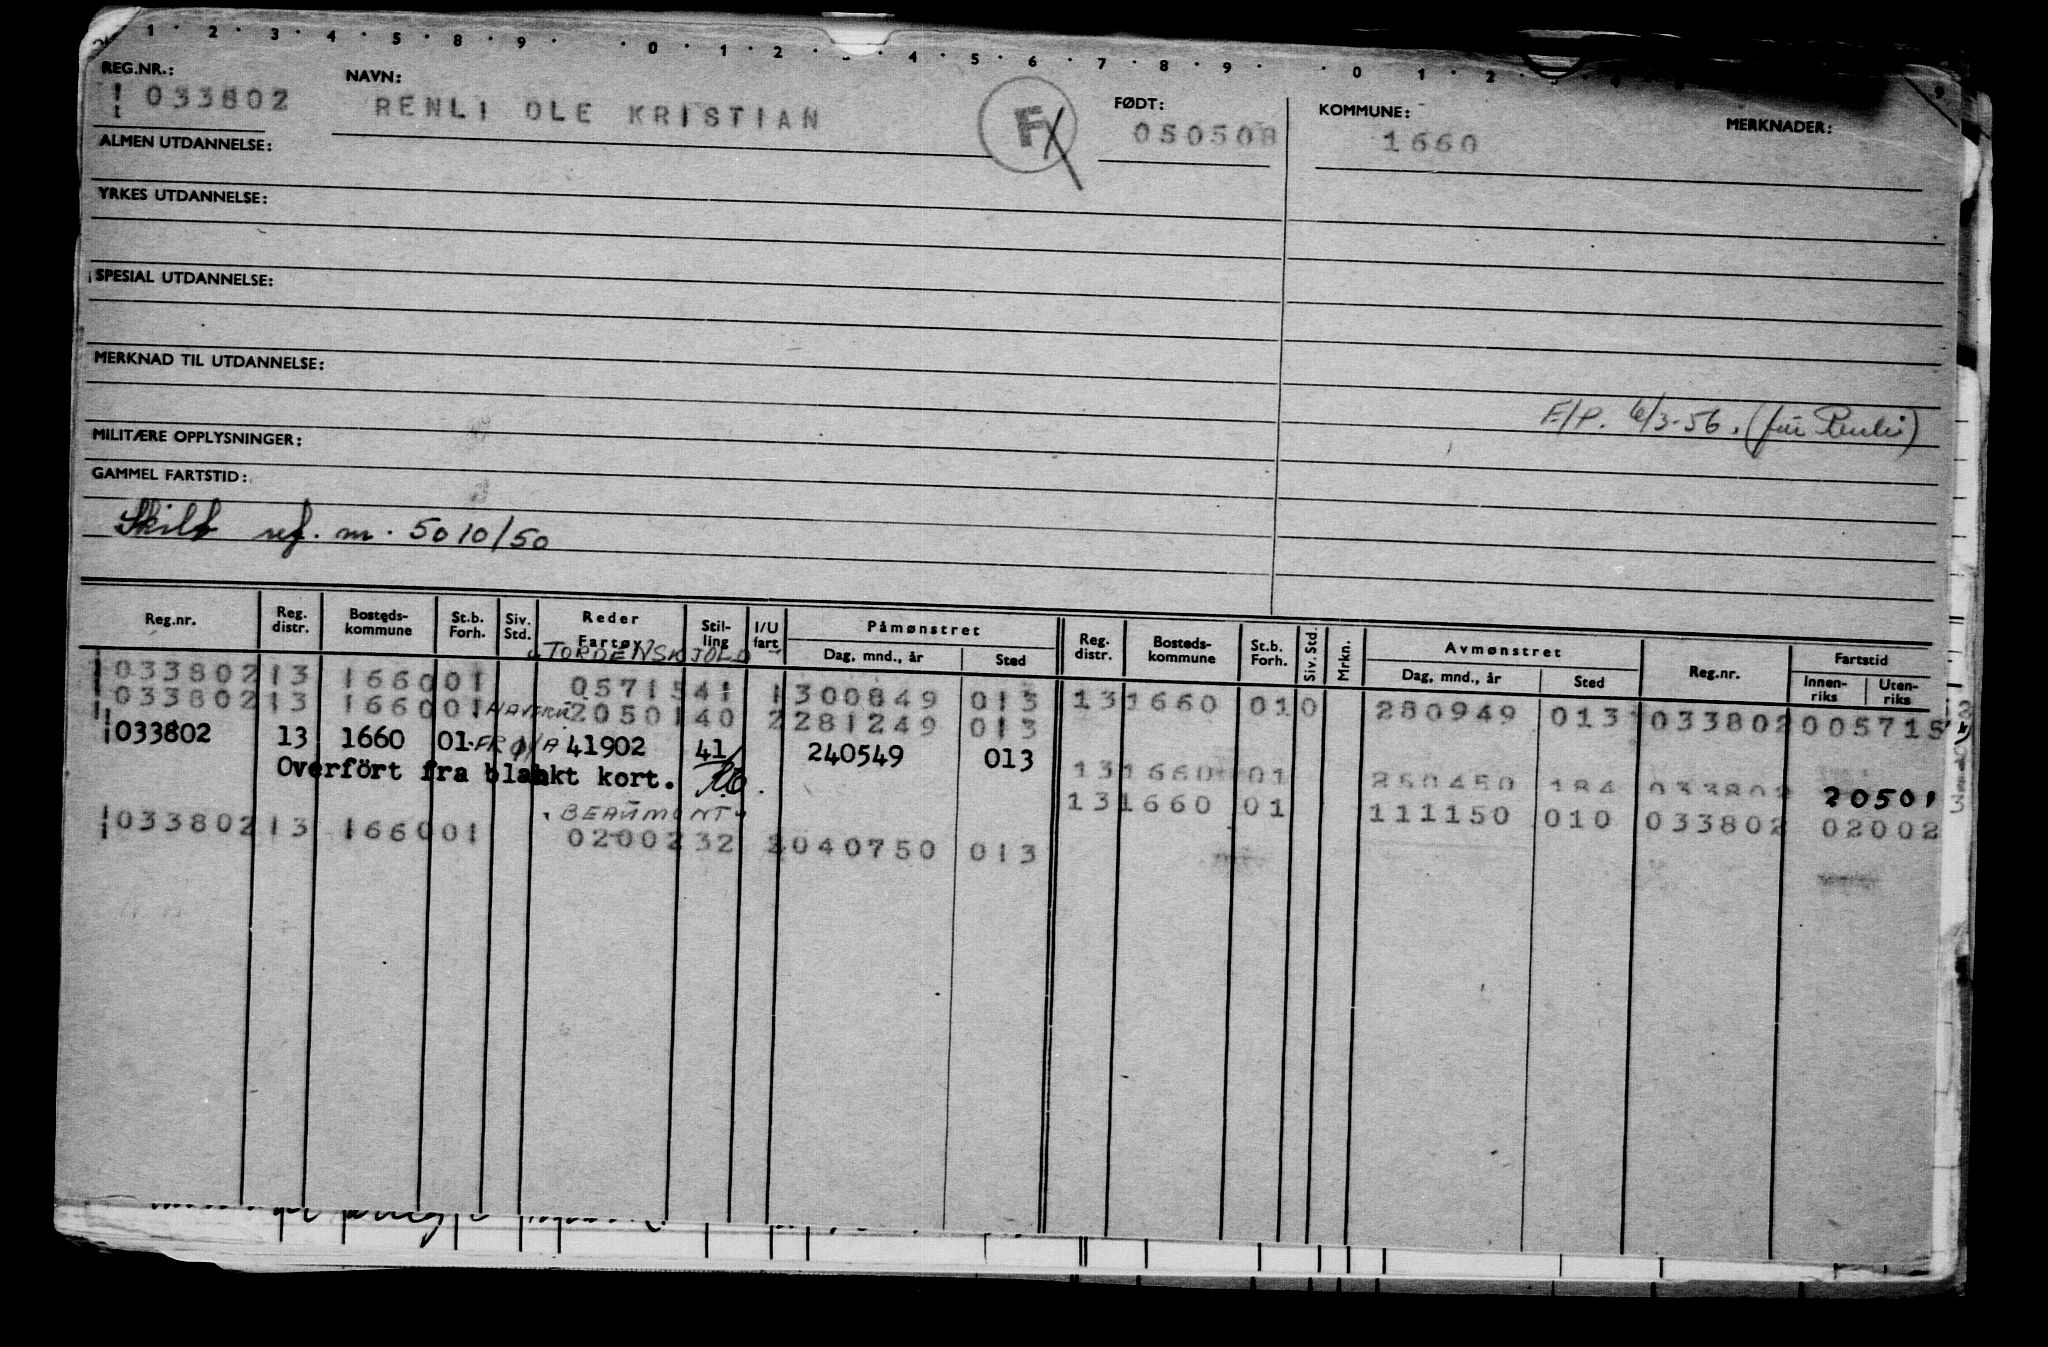 1 · 2 · 3 · 4 · 5 · 8 · 9 · · 0 · 1 · 2 · · 4 · 5 · 6 · 7 · 8 · 9 · · 0 1 · 2
REG.NR.: NAVN: FØDT: KOMMUNE: MERKNADER:
033802 RENLI OLE KRISTIAN F 050508 1660
ALMEN UTDANNELSE:
YRKES UTDANNELSE:
SPESIAL UTDANNELSE:
MERKNAD TIL UTDANNELSE:
F/P. 6/3-56. (fru Renli)
MILITÆRE OPPLYSNINGER:
GAMMEL FARTSTID:
Skilt ref. nr. 5010/50
Reg.nr. Reg. distr. Bosteds-kommune St.b. Forh. Siv. Std. Reder Fartøy Stil-ling I/U fart Påmønstret Dag, mnd., år Sted Reg. distr. Bosteds-kommune St.b. Forh. Siv. Std. Mrkn. Avmønstret Dag, mnd., år Sted Reg.nr. Fartstid Innen-riks Uten-riks
"TORDENSKJOLD"
033802 13 1660 01 05715 41 1 300849 013 13 1660 010 280949 013 033802 005715
033802 13 1660 01 20501 40 2 281249 013
033802 13 1660 01 FRØYA 41902 41 240549 013
Overført fra blankt kort.
13 1660 01 250450 184 033802 20501
"BEAUMONT"
13 1660 01 111150 010 033802 02002
033802 13 1660 01 02002 32 2 040750 013